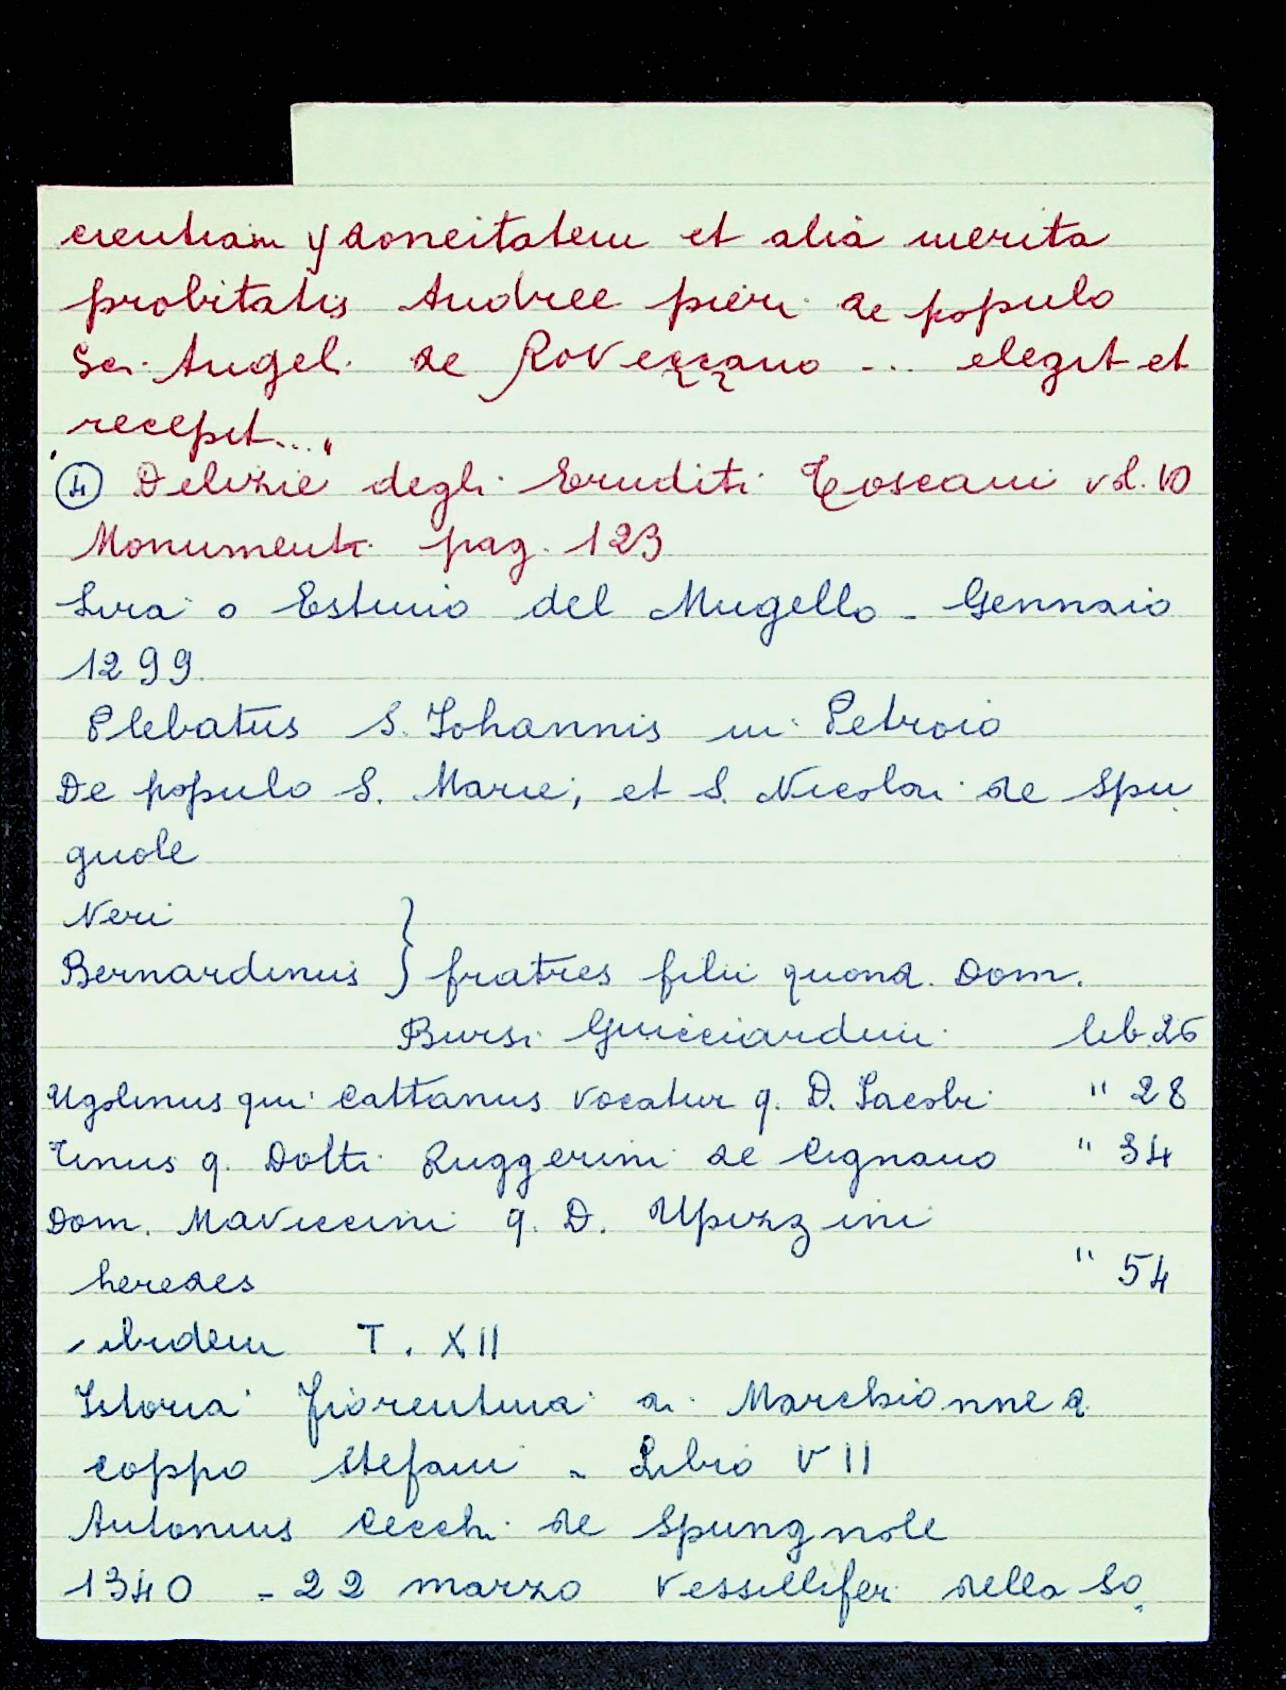 cientiam ydoneitatem et alia merita
probitatis Andree pieri de populo
Sci. Angeli de Rovezzano ... elegit et
recepit..."
④ Delizie degli Eruditi Toscani vol. 10
Monumenti pag. 123
Lira o Estimo del Mugello - Gennaio
1299.
Plebatus S. Johannis in Petroio
De populo S. Marie, et S. Nicolai de Spu
gnole
Neri
Bernardinus } fratres filii quond. Dom.
Bursi Guicciardini lib. 26
Ugolinus qui Cattanus vocatur q. D. Jacobi " 28
Tinus q. Dolti Ruggerini de Cignano " 34
Dom. Maviccini q. D. Upizzini
heredes " 54
- ibidem T. XII
Istoria fiorentina di Marchionne d.
Coppo Stefani - Libro VII
Antonius Cecchi de Spungnole
1340 - 22 marzo Vessillifer della So